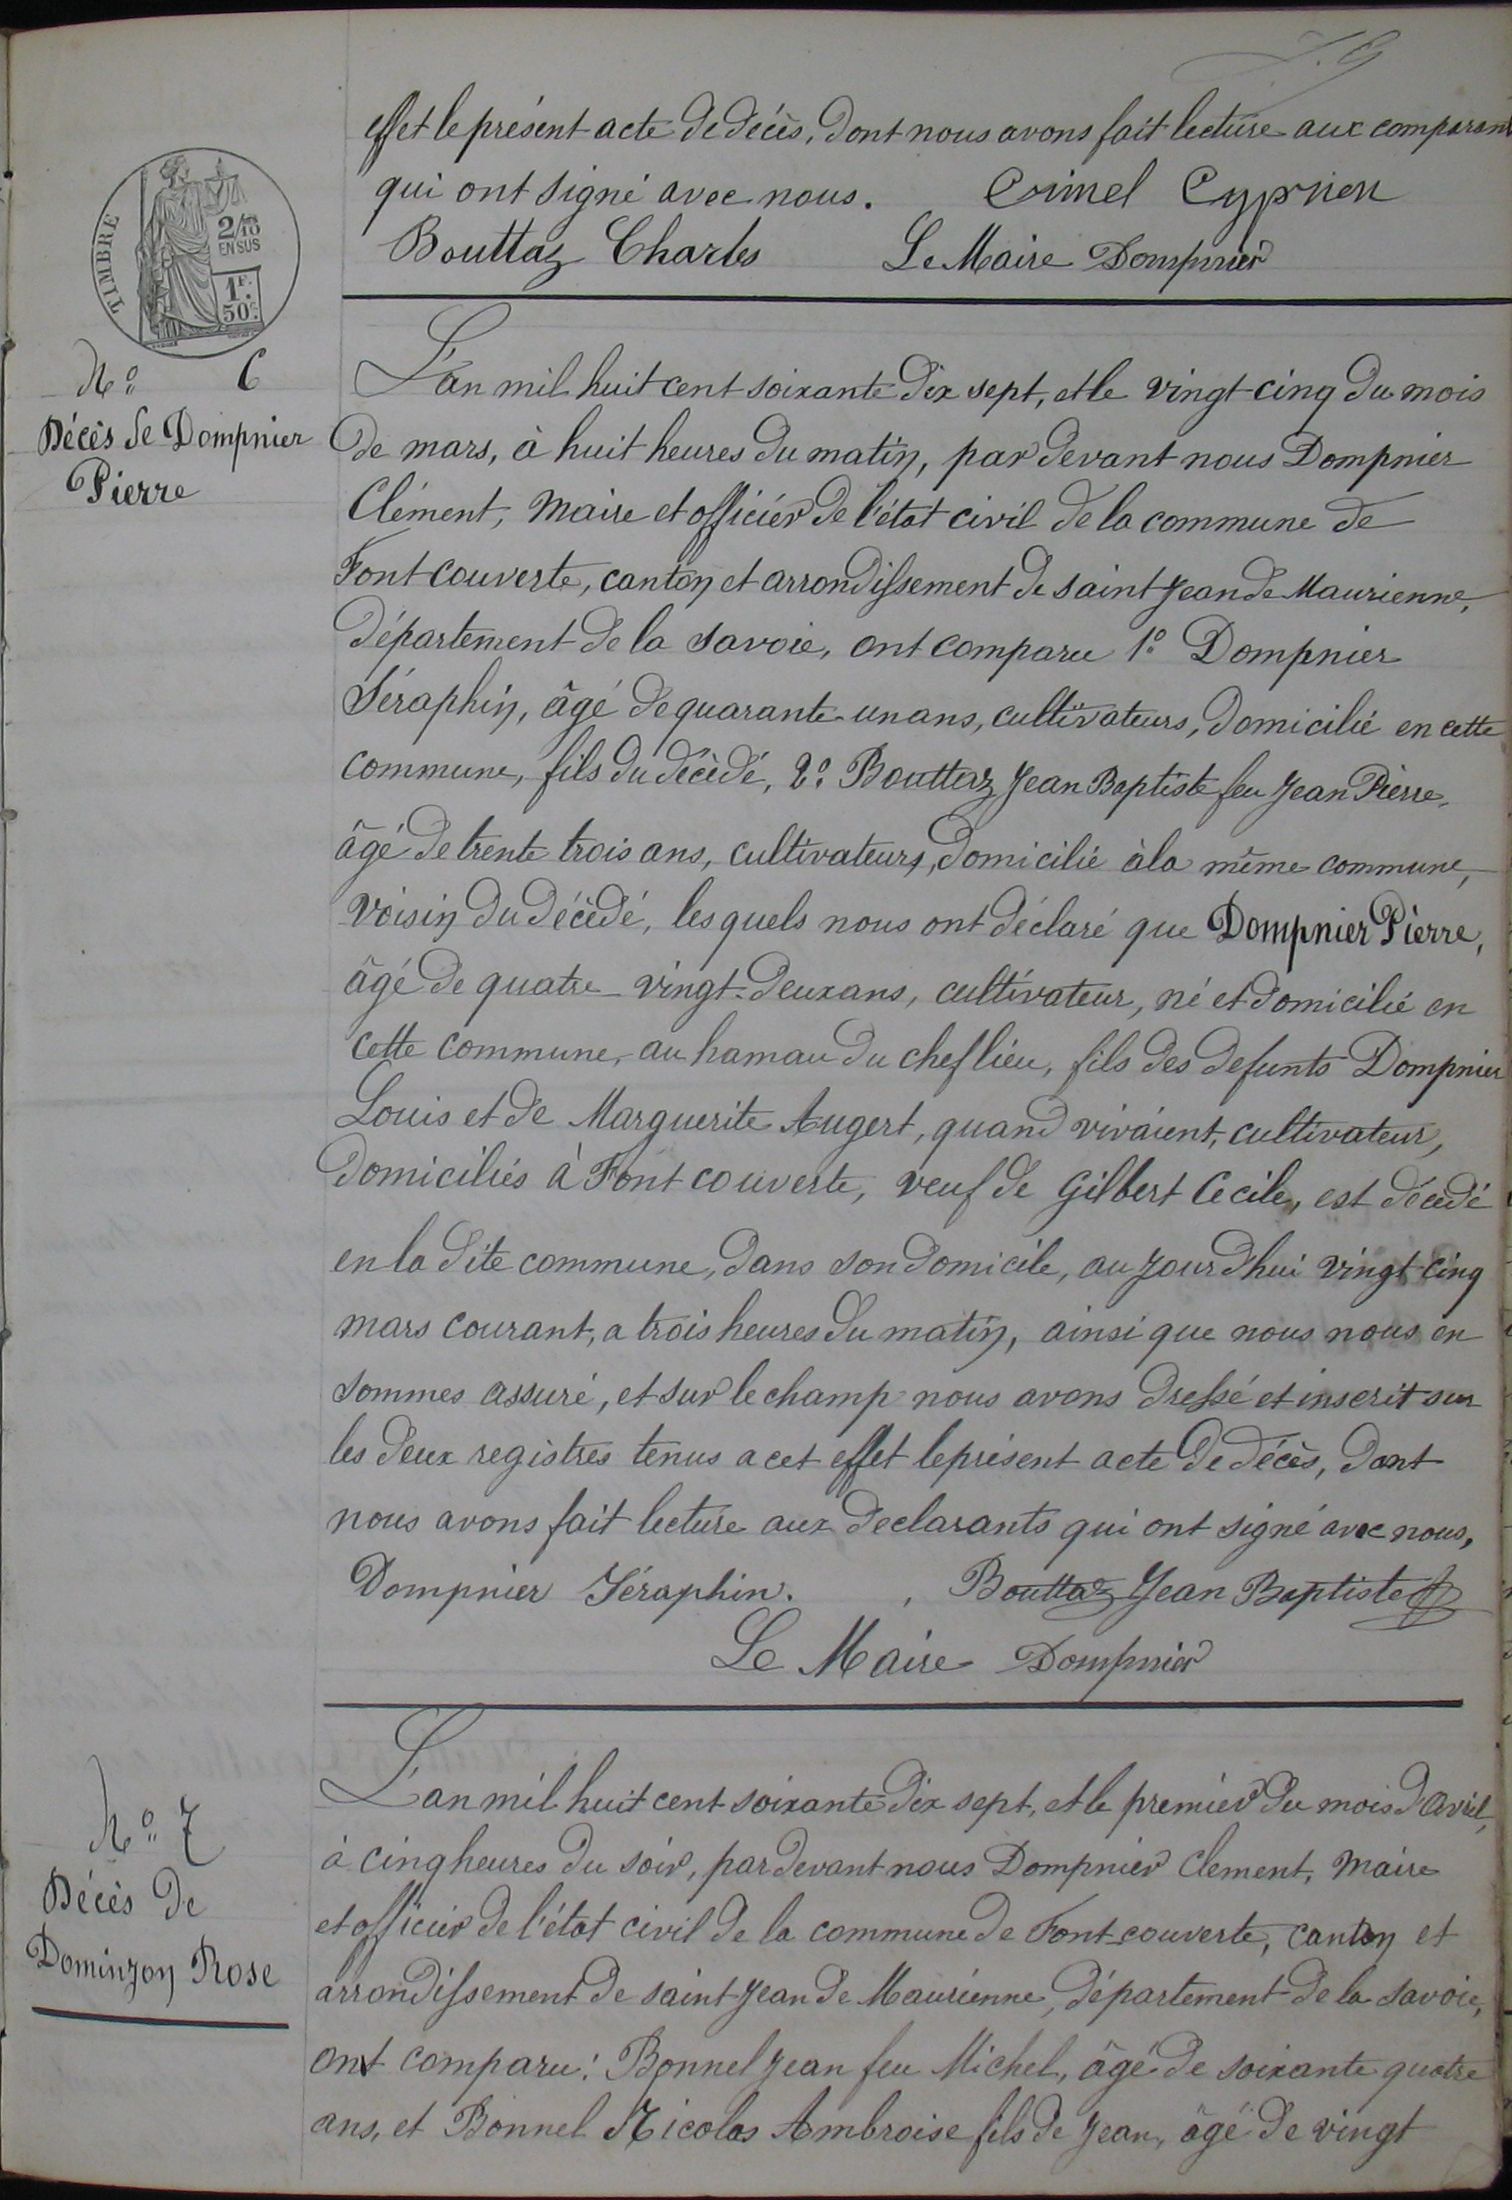 effet le présent acte de décès, dont nous avons fait lecture aux comparant
qui ont signé avec nous. Crinel Cyprien
Bouttaz Charles Le Maire Dompnier
TIMBRE
2/10
EN SUS
1F.
50c.
No 6
Décès de Dompnier
Pierre
L'an mil huit cent soixante dix sept, et le vingt-cinq du mois
de mars, à huit heures du matin, par devant nous Dompnier
Clément, Maire et officiér de l'état civil de la commune de
Fontcouverte, canton et arrondissement de saint Jean de Maurienne,
département de la savoie, ont comparu 1o Dompnier
Séraphin, âgé de quarante-un ans, cultivateurs, domicilié en cette
commune, fils du décédé, 2o Bouttaz Jean Baptiste feu Jean Pierre,
âgé de trente trois ans, cultivateurs, domicilié à la même commune,
voisin du décédé, lesquels nous ont déclaré que Dompnier Pierre,
âgé de quatre-vingt-deux ans, cultivateur, né et domicilié en
cette commune, au hamau du chef lieu, fils des defunts Dompnier
Louis et de Marguerite Augert, quand vivaient, cultivateur,
domiciliés à Font couverte, veuf de Gilbert Cecile, est décédé
en la dite commune, dans son domicile, au jourd'hui vingt cinq
mars courant, a trois heures du matin, ainsi que nous nous en
sommes assuré, et sur le champ nous avons dressé et inscrit sur
les deux registres tenus a cet effet le présent acte de décès, dont
nous avons fait lecture aux declarants qui ont signé avec nous,
Dompnier Séraphin. Bouttaz Jean Baptiste
Le Maire Dompnier
No 7
Décès de
Dominjon Rose
L'an mil huit cent soixante dix sept, et le premiér du mois d'avril,
à cinq heures du soir, par devant nous Dompnier Clement, Maire
et officiér de l'état civil de la commune de Font-couverte, canton et
arrondissement de saint Jean de Maurienne, département de la savoie,
ont comparu: Bonnel Jean feu Michel, âgé de soixante quatre
ans, et Bonnel Nicolas Ambroise fils de Jean, âgé de vingt